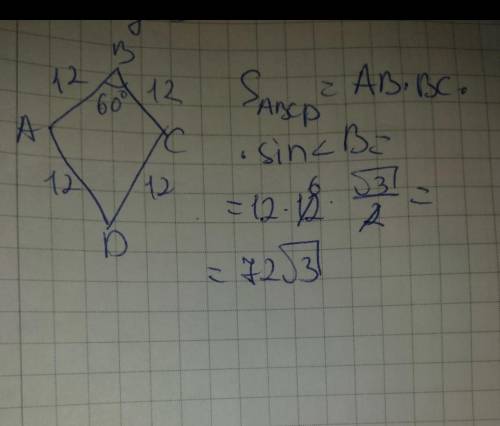 B
12 12
60°
A C
12 12
D
S_ABCD = AB·BC·
·sin<B=
=12·12⁶·√3/2=
=72√3